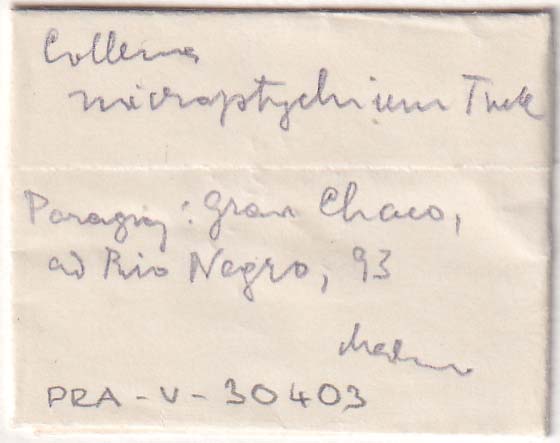 Collema
microptychium Tuck
Paraguay: Gran Chaco,
ad Rio Negro, 93
Malme
PRA-V-30403